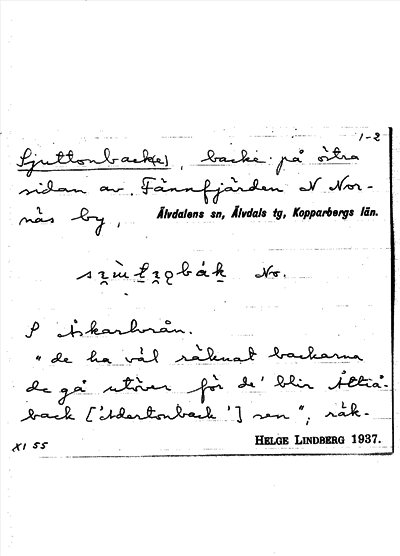 1-2
Sjuttonback(e), backe på östra
sidan av Fännfjärden N Nor-
näs by,
Älvdalens sn, Älvdals tg, Kopparbergs län.
No.
S Åskarkvarn.
"de ha väl räknat backarna
de gå utöver för de' blir
back ['Adertonback'] sen", räk-
XI 55
HELGE LINDBERG 1937.